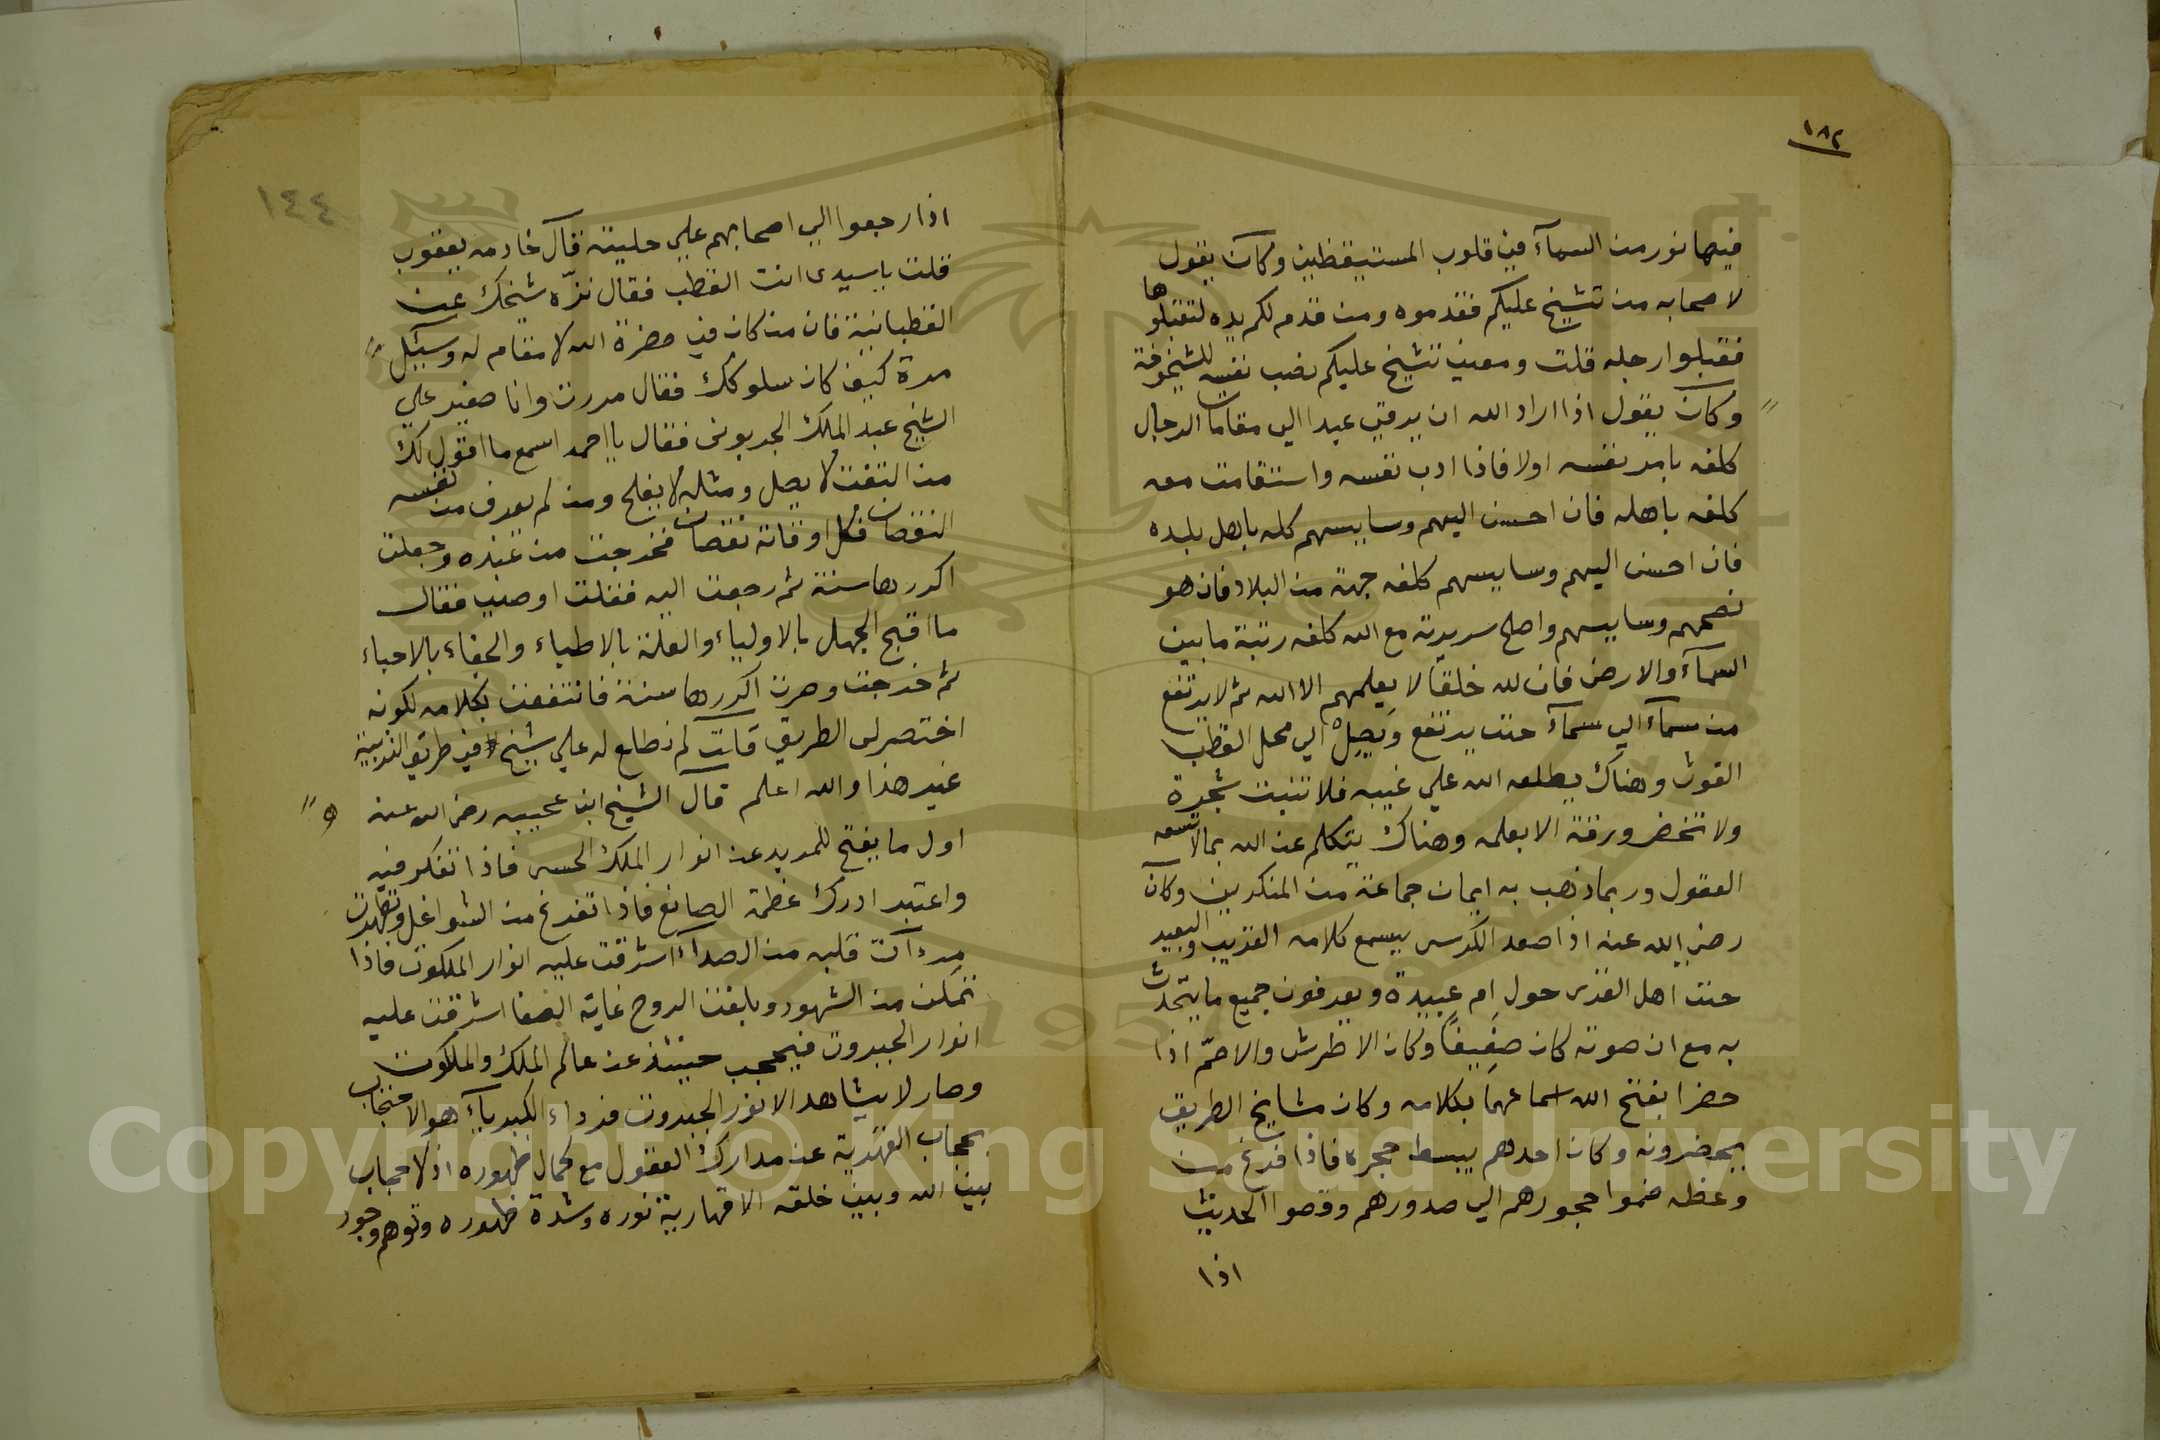 ١٨٢
فيها نور من السمآء في قلوب المستيقظين وكان يقول
لاصحابه من تشيخ عليكم فقدموه ومن قدم لكم يده لتقبلوها
فقبلوا رجله قلت ومعني تشيخ عليكم نصب نفسه للشيخوخة
وكان يقول اذا اراد الله ان يرقي عبدا الي مقامات الرجال
كلفه بامر نفسه اولا فاذا ادب نفسه واستقامت معه
كلفه باهله فان احسن اليهم وسايسهم كلفه باهل بلده
فان احسن اليهم وسايسهم كلفه جهة من البلاد فان هو
نصحهم وسايسهم واصلح سريرته مع الله كلفه رتبة ما بين
السمآء والارض فان لله خلقا لا يعلمهم الا الله ثم لا يرتفع
من سمآء الي سمآء حتي يرتفع ويصل الي محل القطب
الغوث وهناك يطلعه الله علي غيبه فلا تنبت شجرة
ولا تخضر ورقة الا بعلمه وهناك يتكلم عن الله بما لا تسعه
العقول وربما ذهب به ايمان جماعة من المنكرين وكان
رضي الله عنه اذا صعد الكرسي يسمع كلامه القريب والبعيد
حتي اهل القري حول ام عبيدة ويعرفون جميع ما يتحدث
به مع ان صوته كان ضعيفا وكان الاطرش والاصم اذا
حضرا يفتح الله اسماعهما بكلامه وكان مشايخ الطريق
يحضرونه وكان احدهم يبسط حجره فاذا فرغ من
وعظه ضموا حجورهم الي صدورهم وقصوا الحديث
اذا
١٤٤
اذا رجعوا الي اصحابهم علي حليته قال خادمه يعقوب
قلت ياسيدي انت القطب فقال نزه شيخك عن
القطبانية فان من كان في حضرة الله لا مقام له وسئل
مرة كيف كان سلوكك فقال مررت وانا صغير علي
الشيخ عبد الملك الخربوني فقال يا احمد اسمع ما اقول لك
من التفت لا يصل ومثله لا يفلح ومن لم يعرف من نفسه
النقصان فكل اوقاته نقصان فخرجت من عنده وجعلت
اكررها سنة ثم رجعت اليه فقلت اوصني فقال
ما اقبح الجهل بالاولياء والعلة بالاطباء والجفاء بالاحباء
ثم خرجت وصرت اكررها سنة فانتفعت بكلامه لكونه
اختصر لي الطريق قالت لم نطلع له علي شيخ في طريق التربية
غير هذا والله اعلم قال الشيخ ابن عجيبه رضي الله عنه
اول ما يفتح للمريد عن انوار الملك الحسي فاذا تفكر فيه
واعتبر ادرك عظمة الصانع فاذا تفرغ من الشواغل وتطهرت
مرءآت قلبه من الصداء اشرقت عليه انوار الملكوت فاذا
تمكن من الشهود وبلغت الروح غاية الصفا اشرقت عليه
انوار الجبروت فيحجب حينئذ عن عالم الملك والملكوت
وصار لا يشاهد الا نور الجبروت فرداء الكبريآء هو الاحتجاب
بحجاب القهرية عن مدارك العقول مع كمال ظهوره اذ لا حجاب
بين الله وبين خلقه الا قهارية نوره وشدة ظهوره وتوهم وجود
Copyright © King Saud University
1957